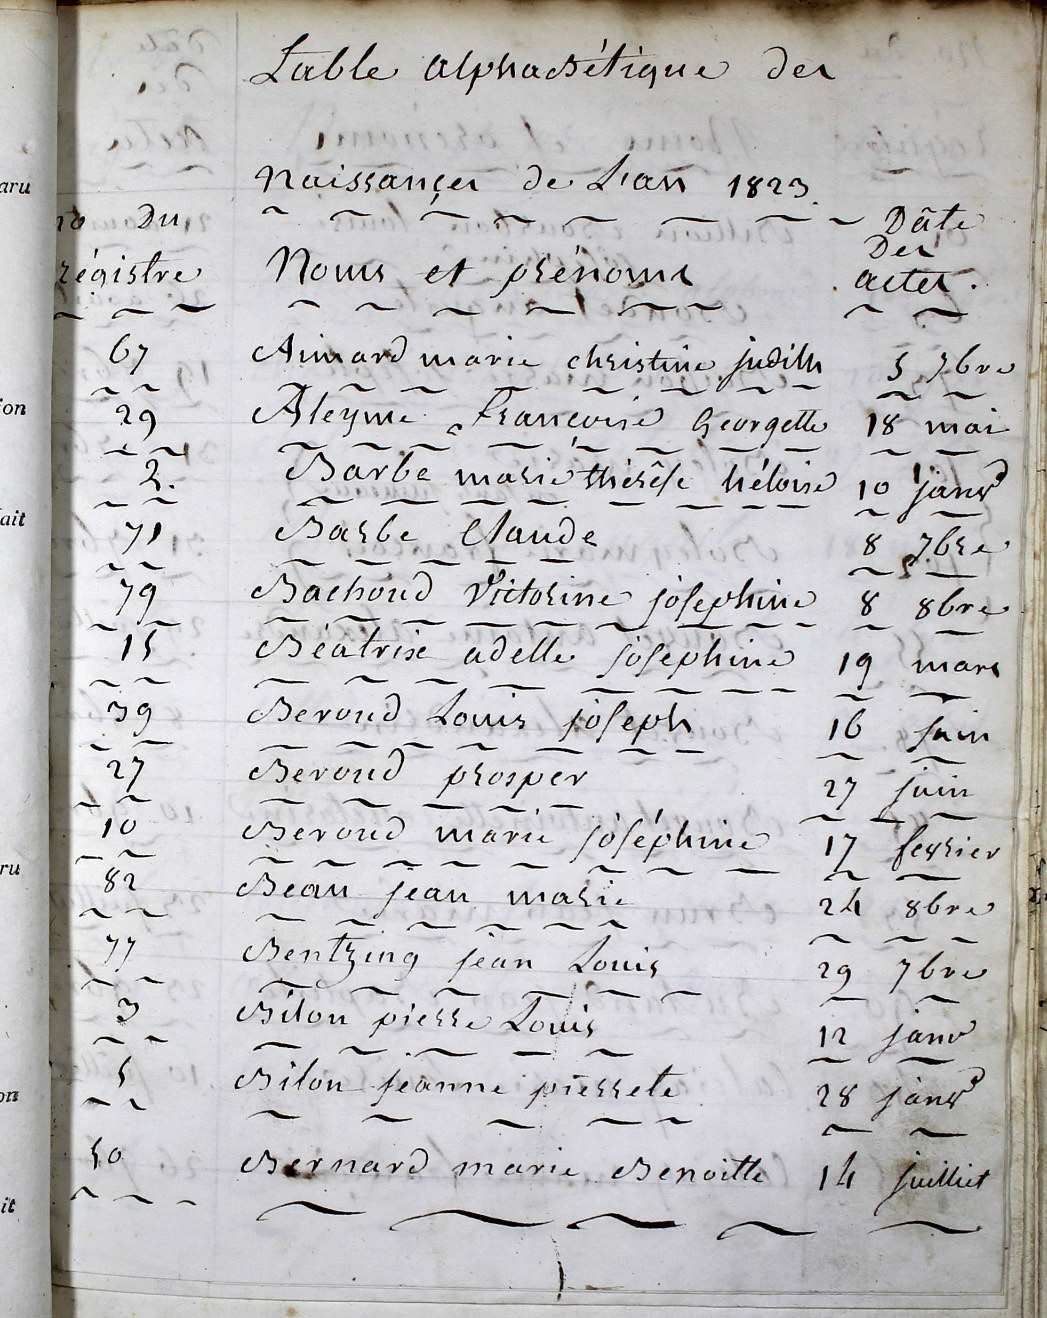 Table alphabétique des
Naissançes de L'an 1823.
no Du
régistre
Noms et prénoms
Dâte
Des
actes.
67 Aimard marie christine judith 5 7bre
29 Aleyme Françoise Georgette 18 mai
2. Barbe marie thérêse héloise 10 janvr
71 Barbe Claude 8 7bre
79 Bachoud Victorine josephine 8 8bre
15 Béatrix adelle josephine 19 mars
39 Beroud Louis joseph 16 juin
27 Beroud prosper 27 juin
10 Beroud marie joséphine 17 fevrier
82 Beau jean marie 24 8bre
77 Bentzing jean Louis 29 7bre
3 Bilon pierre Louis 12 janvr
5 Bilon jeanne pierrete 28 janvr
50 Bernard marie Benoitte 14 juillet
aru
ion
fait
ru
on
it